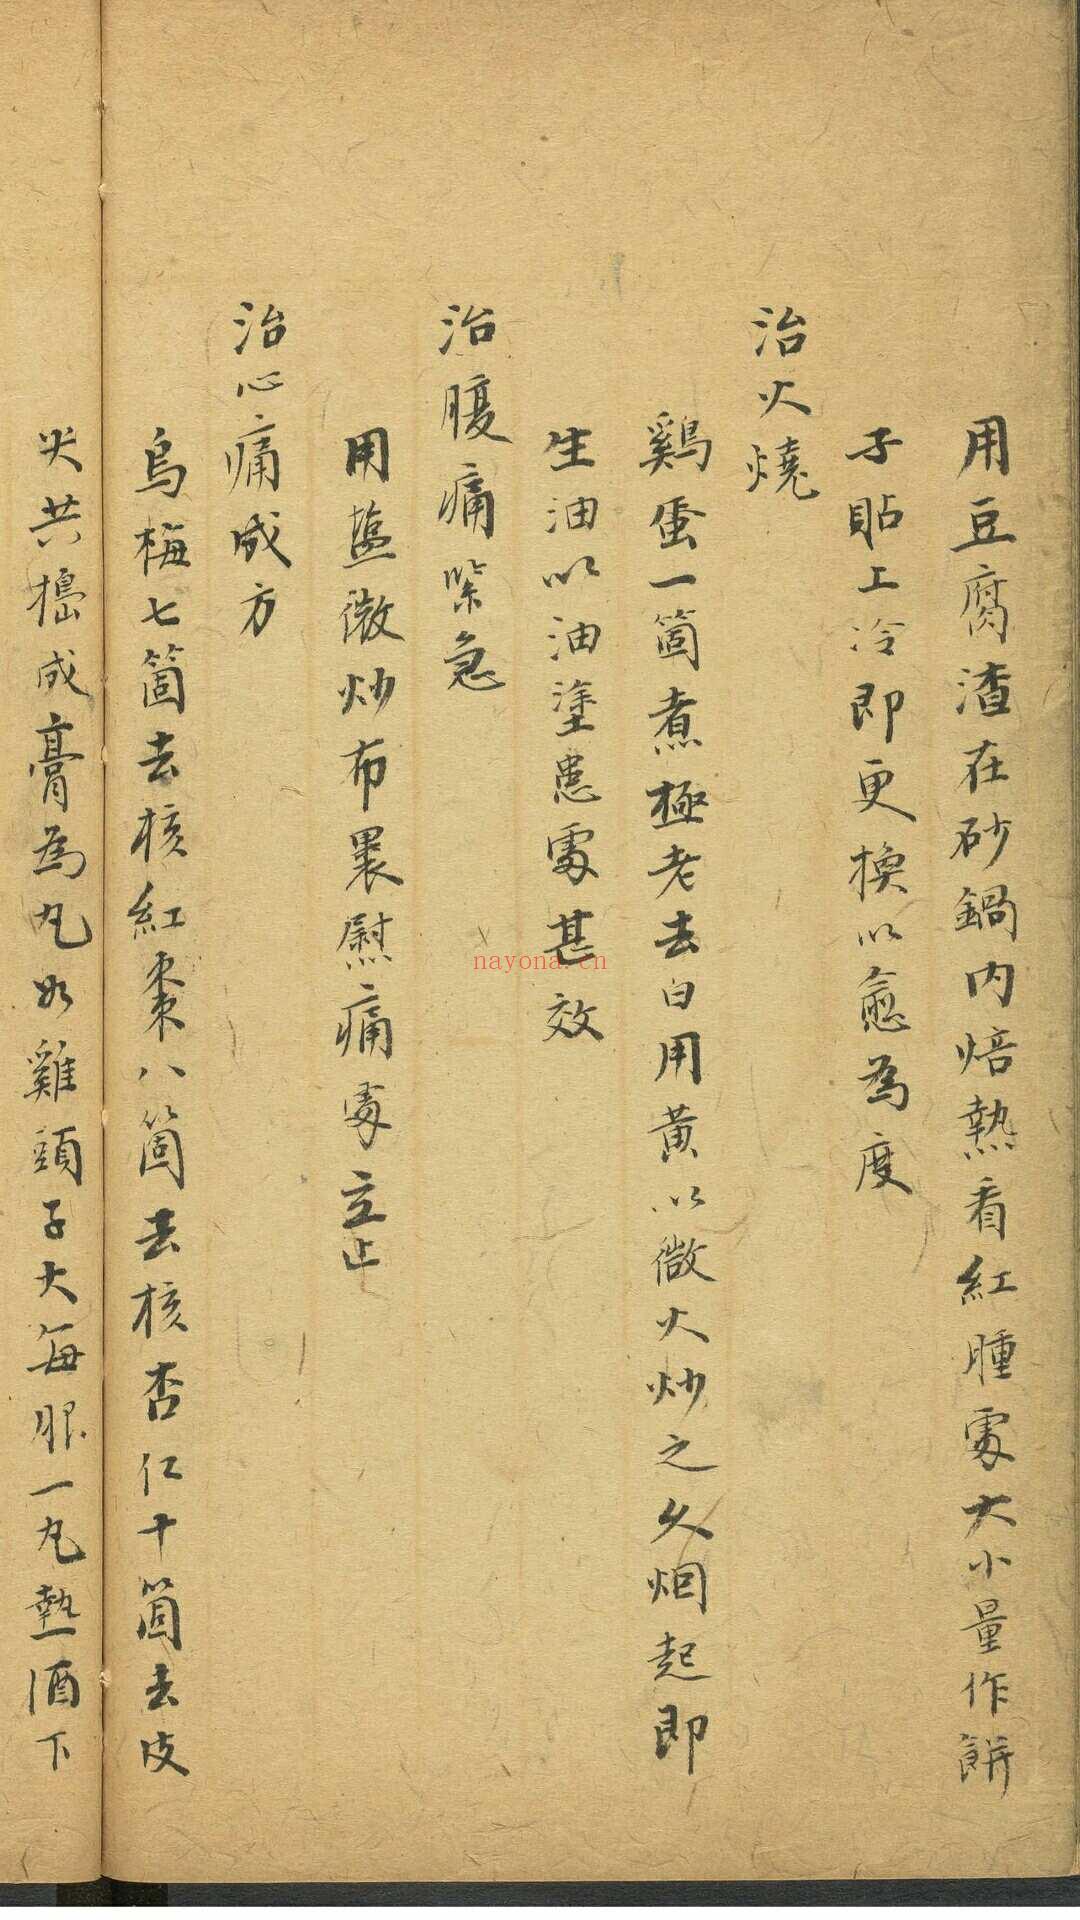 用豆腐渣在砂鍋内焙熱看紅腫處大小量作餅
子貼上冷即更換以愈為度
治火燒
鷄蛋一箇煮極老去白用黄以微火炒之久烟起即
生油以油塗患處甚效
治腹痛緊急
用盐微炒布裹熨痛處立止
治心痛咸方
烏梅七箇去核紅棗八箇去核杏仁十箇去皮
尖共搗成膏為丸如雞頭子大每服一丸熱酒下
nayona.cn